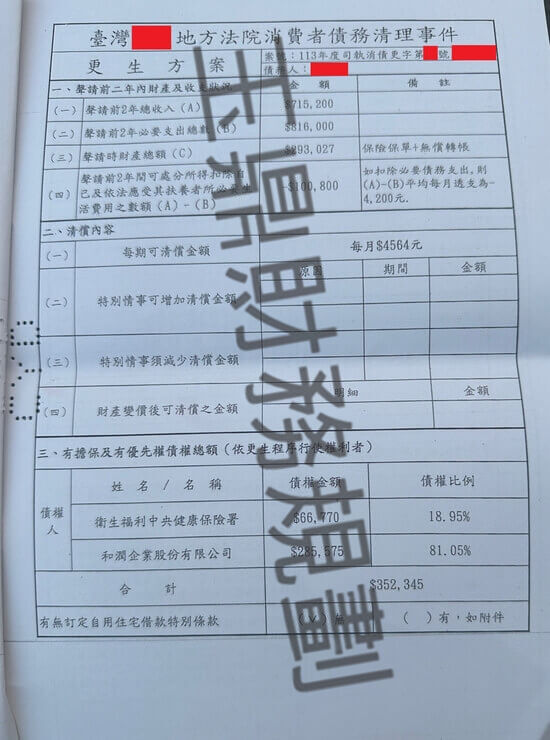 臺灣 地方法院消費者債務清理事件
更生方案
案號：113年度司執消債更字第 號
債務人：
一、聲請前二年內財產及收支狀況 金額 備註
(一) 聲請前2年總收入(A) $715,200
(二) 聲請前2年必要支出總數(B) $816,000
(三) 聲請時財產總額(C) $293,027 保險保單+無償轉帳
(四) 聲請前2年間可處分所得扣除自己及依法應受其扶養者所必要生活費用之數額(A)-(B) -$100,800 如扣除必要債務支出,則(A)-(B)平均每月透支為-4,200元.
二、清償內容
(一) 每期可清償金額 每月$4564元
(二) 特別情事可增加清償金額 原因 期間 金額
(三) 特別情事須減少清償金額
(四) 財產變價後可清償之金額 明細 金額
三、有擔保及有優先權債權總額(依更生程序行使權利者)
債權人 姓名/名稱 債權金額 債權比例
衛生福利中央健康保險署 $66,770 18.95%
和潤企業股份有限公司 $285,575 81.05%
合計 $352,345
有無訂定自用住宅借款特別條款 (V)無 ( )有,如附件
玉鼎財務規劃